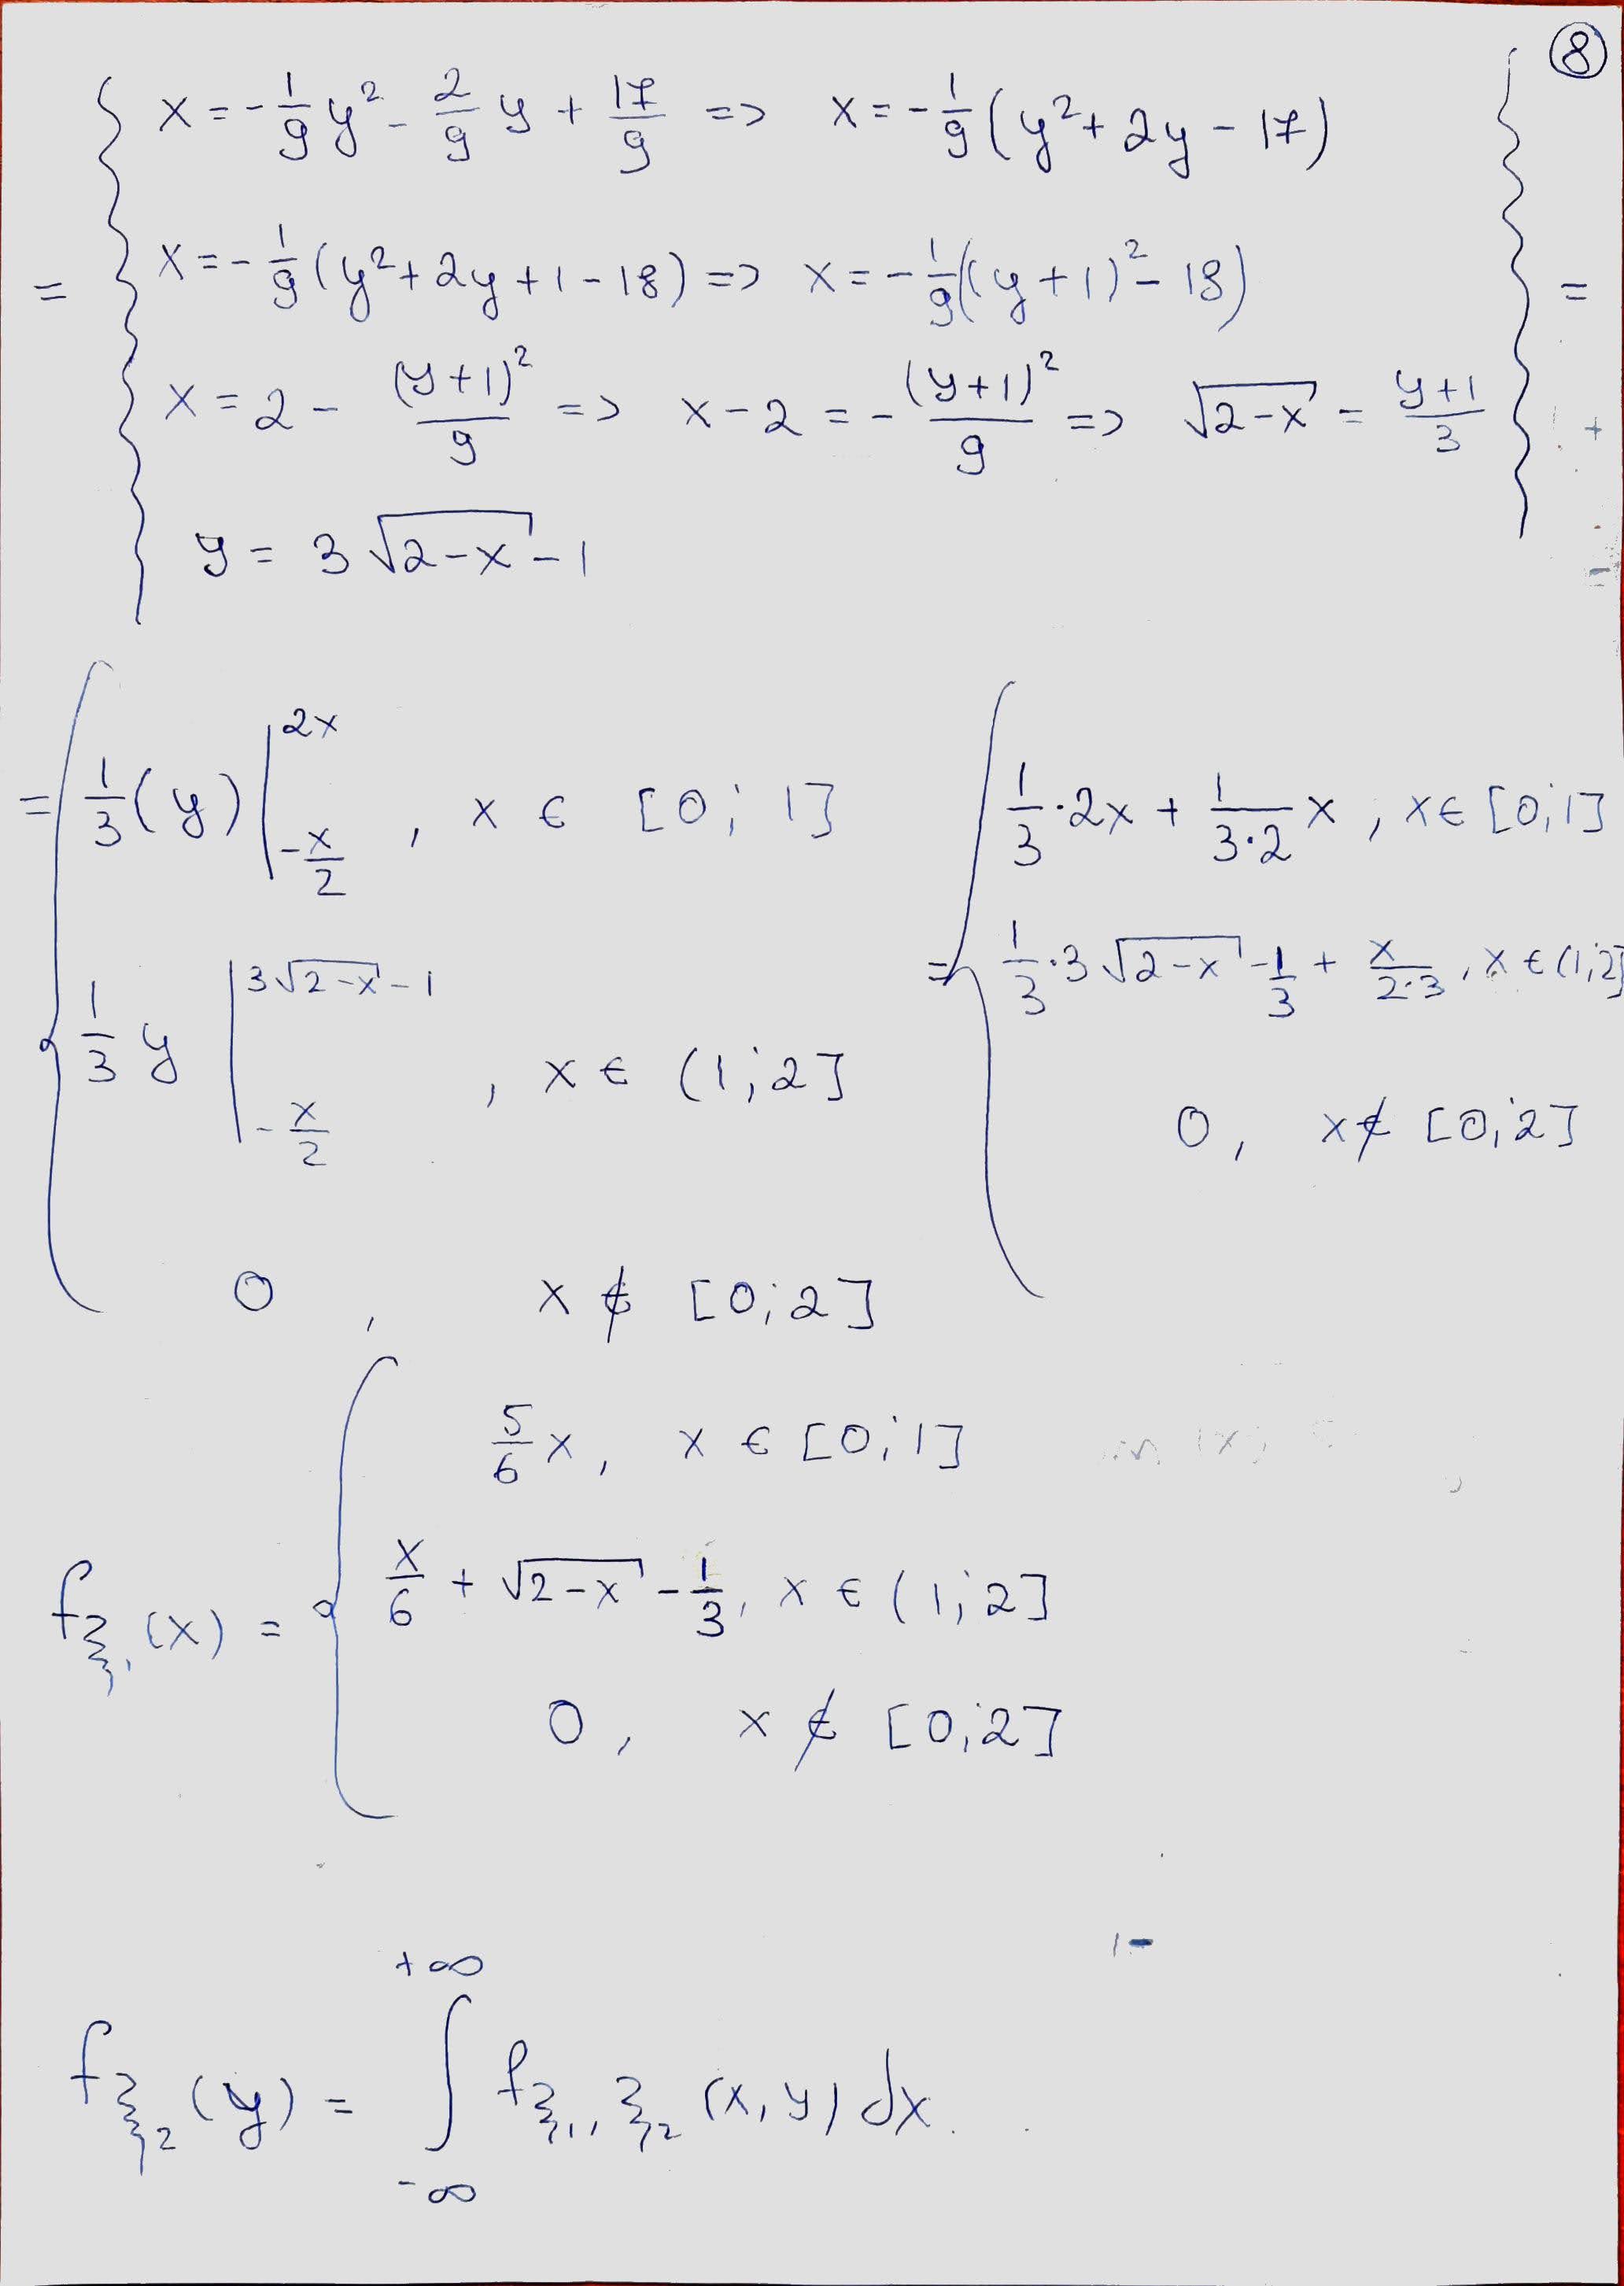 ⑧
x = -1/9 y² - 2/9 y + 17/9 => x = -1/9 (y² + 2y - 17)
= { x = -1/9 (y² + 2y + 1 - 18) => x = -1/9 ((y + 1)² - 18) } =
x = 2 - (y+1)²/9 => x - 2 = - (y+1)²/9 => √(2-x) = (y+1)/3
y = 3 √(2-x) - 1
= { 1/3 (y) |_{-x/2}^{2x} , x ∈ [0; 1]
1/3 y |_{-x/2}^{3√(2-x) - 1} , x ∈ (1; 2]
0 , x ∉ [0; 2]
= { 1/3 · 2x + 1/(3·2) x , x ∈ [0; 1]
1/3 · 3 √(2-x) - 1/3 + x/(2·3) , x ∈ (1; 2]
0 , x ∉ [0; 2]
f_{ξ₁}(x) = { 5/6 x , x ∈ [0; 1]
x/6 + √(2-x) - 1/3 , x ∈ (1; 2]
0 , x ∉ [0; 2]
f_{ξ₂}(y) = ∫_{-∞}^{+∞} f_{ξ₁, ξ₂}(x, y) dx